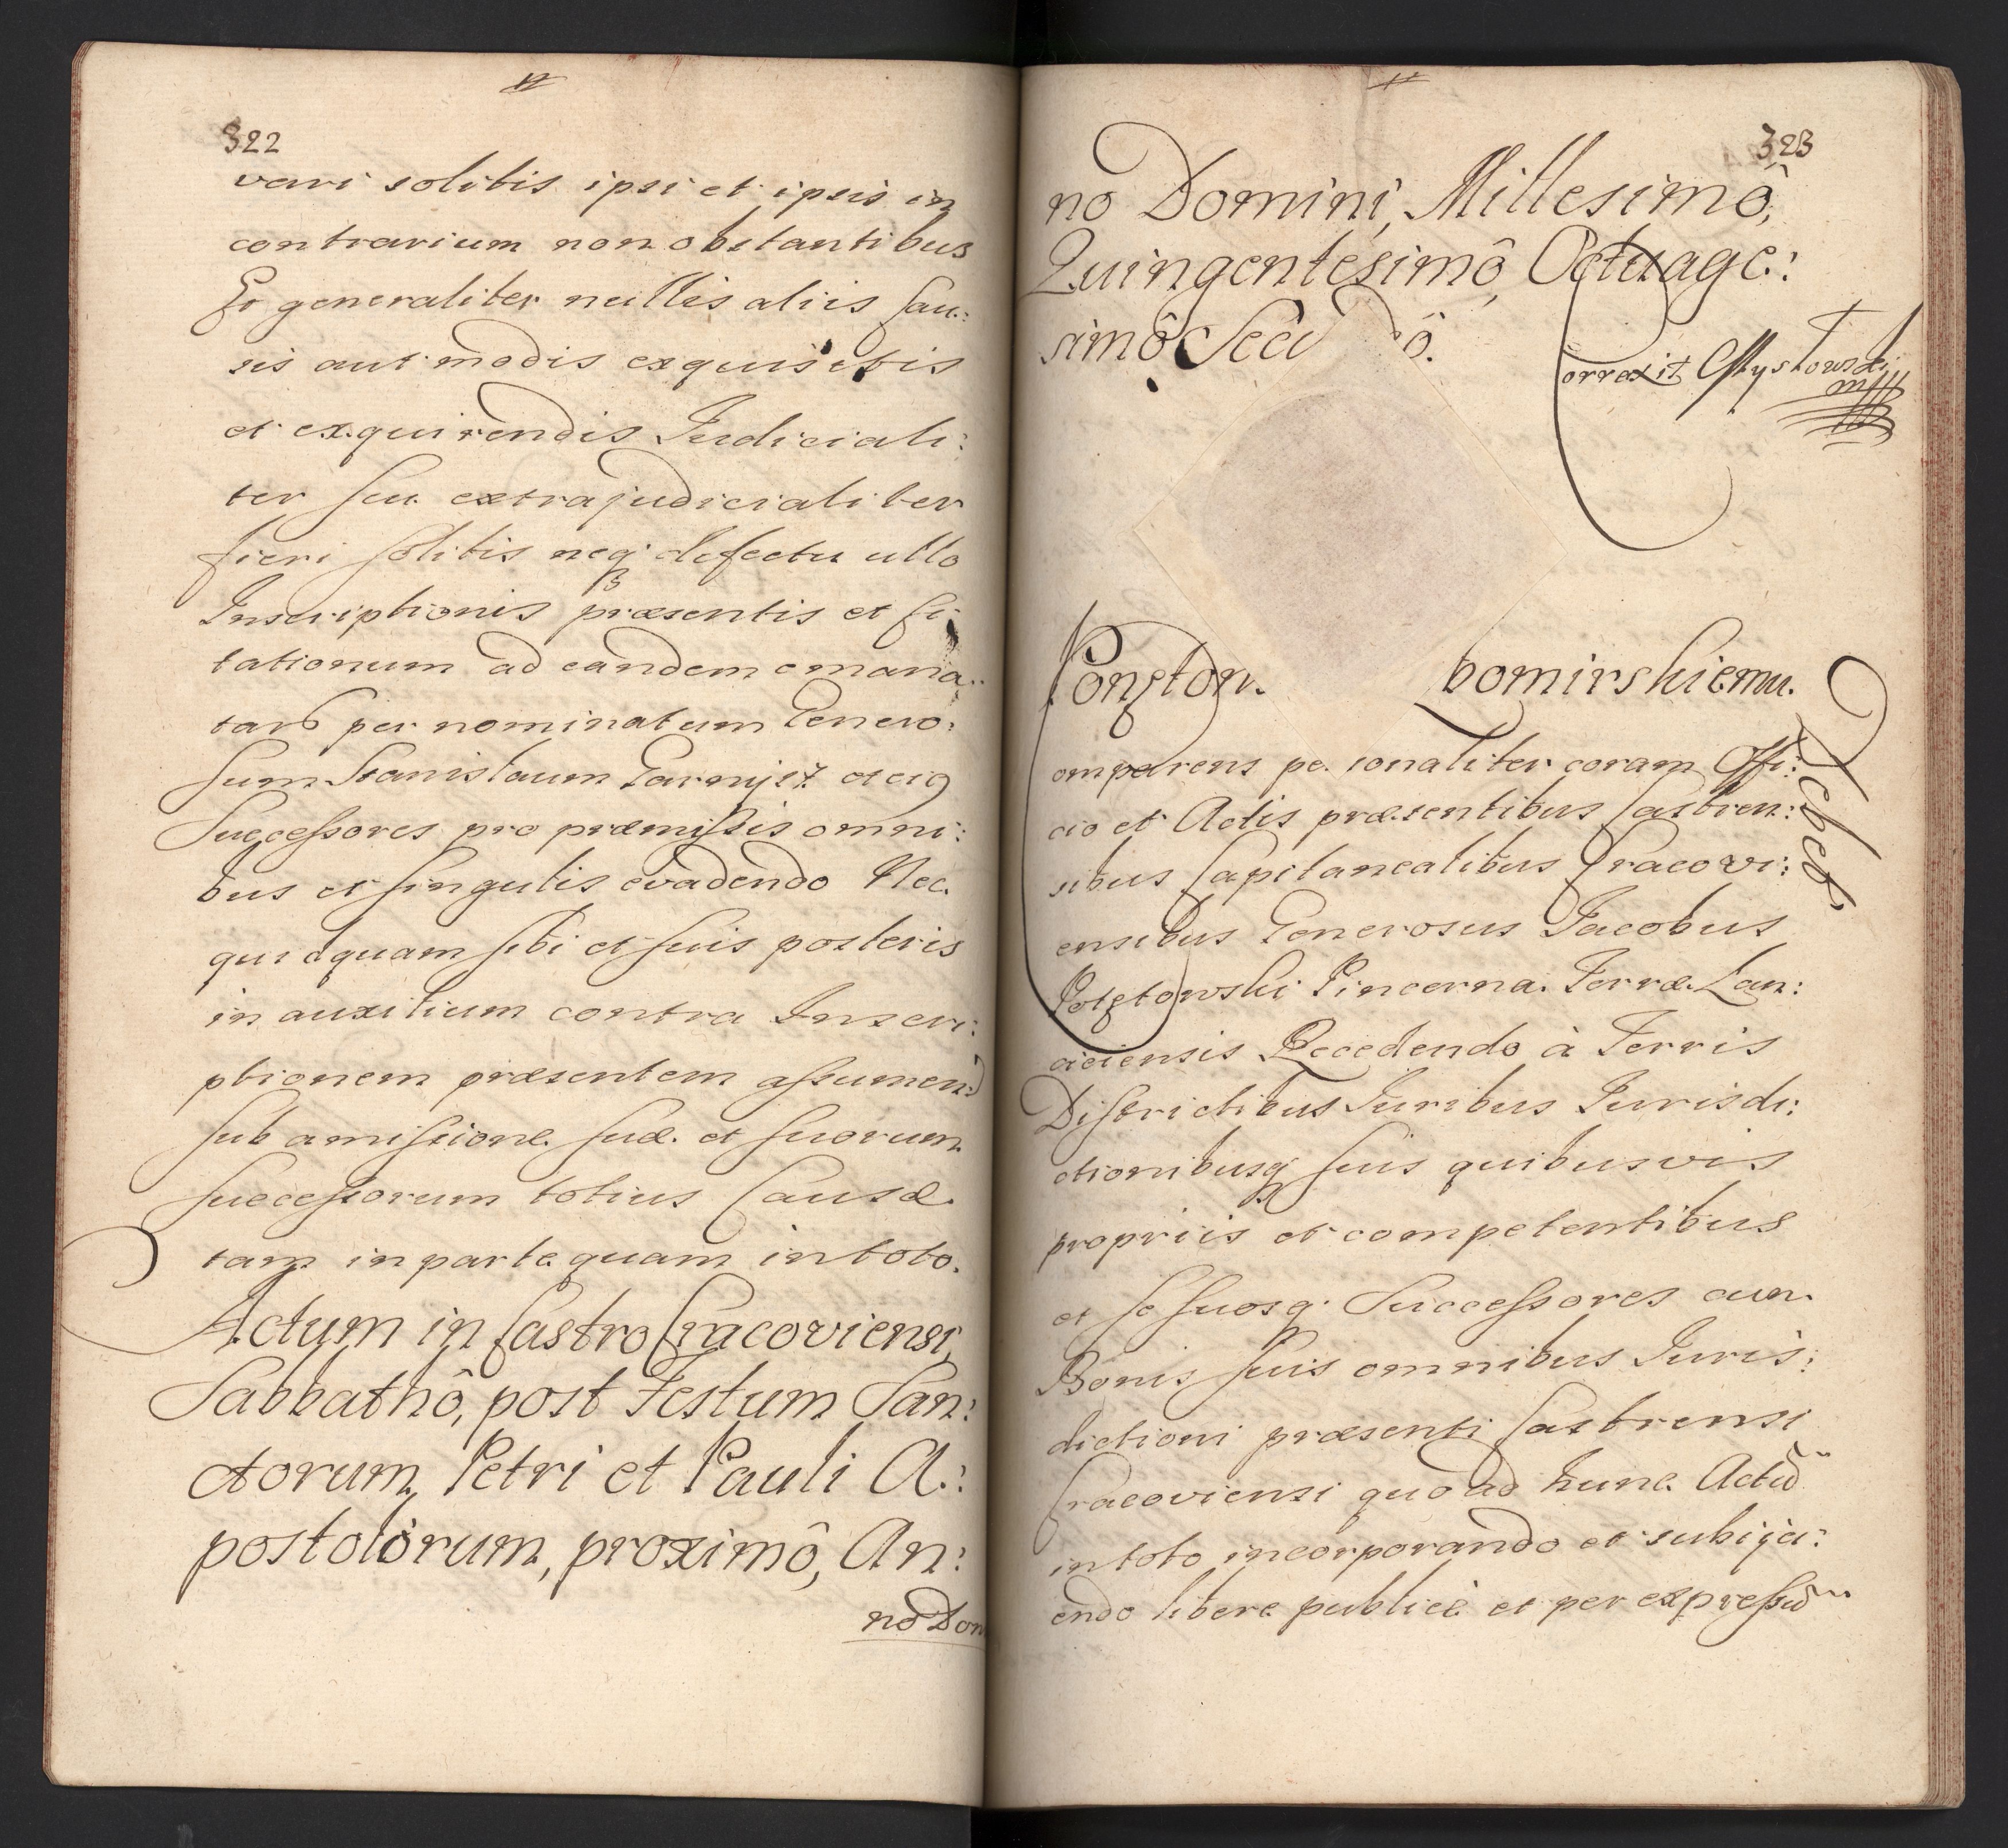 322
vari solitis ipsi et ipsis in
contrarium non obstantibus
Et generaliter nullis aliis Cau:
sis aut modis exquisitis
et exquirendis Iudiciali:
ter seu extrajudicialiter
fieri solitis neq; defectu ullo
Inscriptionis præsentis et Ci:
tationum ad eandem emana:
tarũ per nominatum Genero:
sum Stanislaum Garnysz et eiq
Successores pro præmissis omni:
bus et singulis evadendo Nec.
quidquam sibi et suis posteris
in auxilium contra Inscri:
ptionem præsentem assumen:
sub amissione suæ et suorum
successorum totius Causæ.
tam in parte quam in toto.
Actum in Castro Cracoviensi,
Sabbathô, post Festum San:
ctorum Petri et Pauli A:
postolorum, proximô, An:
no Dom
323
no Domini, Millesimô,
Quingentesimô, Octuage:
simô Secu dô.
Correxit
Conston. bomirskiemu.
Comparens pe sonaliter coram Offi:
cio et Actis præsentibus Castren:
sibus Capitanealibus Cracovi:
ensibus Generosus Jacobus
Pincerna Terræ Lan:
ciciensis Recedendo à Terris
Districtibus Iuribus Iurisdi:
ctionibusq; suis quibusvis
propriis et competentibus
et se suosq; Successores cum
Bonis suis omnibus Iuris:
dictioni præsenti Castrensi
Cracoviensi quo ad hunc Actũ
in toto incorporando et subijci:
endo libere publicè et per expressũ